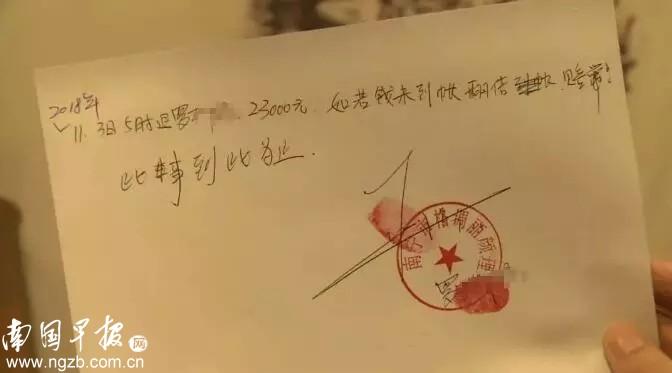 2018年
11.3日5时退罗 23000元.如若钱未到帐翻倍 赔常!
此事到此为止.
南
丽颜理
罗
南国早报网
www.ngzb.com.cn